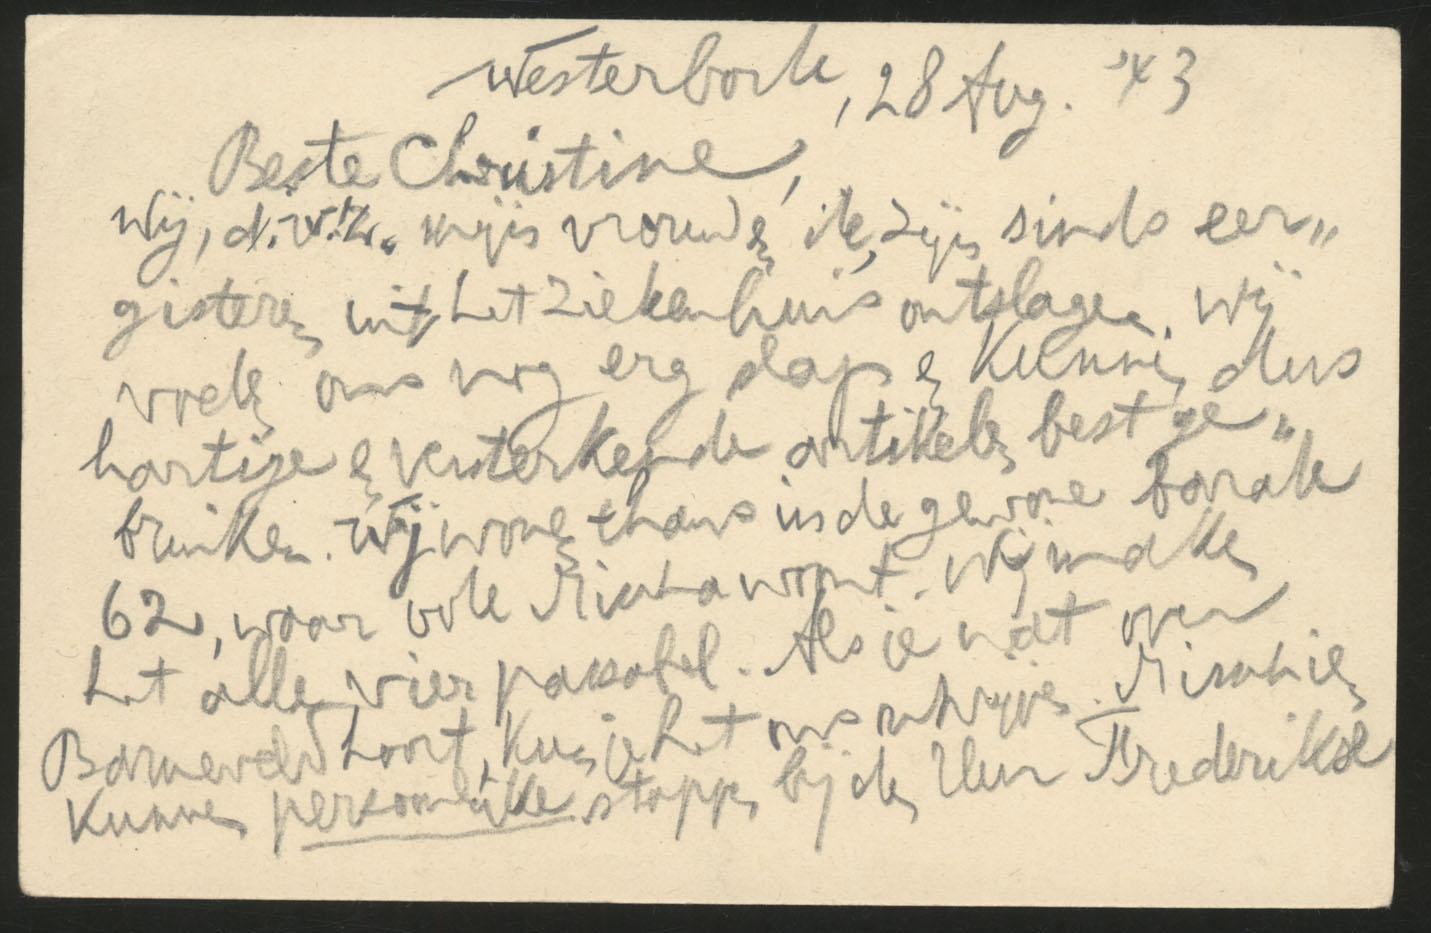 Westerbork, 28 Aug. '43
Beste Christine,
Wij, d.w.z. mijn vrouw en ik, zijn sinds eer„
gisteren uit het Ziekenhuis ontslagen. Wij
voelen ons nog erg slap en kunnen dus
hartige en versterkende artikelen best ge„
bruiken. Wij wonen thans in de gewone barak
62, waar ook Mischa woont. Wij maken
het alle vier passabel. Als je wat over
Barneveld hoort, kun je het ons schrijven. Misschien
kunnen persoonlijke stappen bij den Heer Frederikse